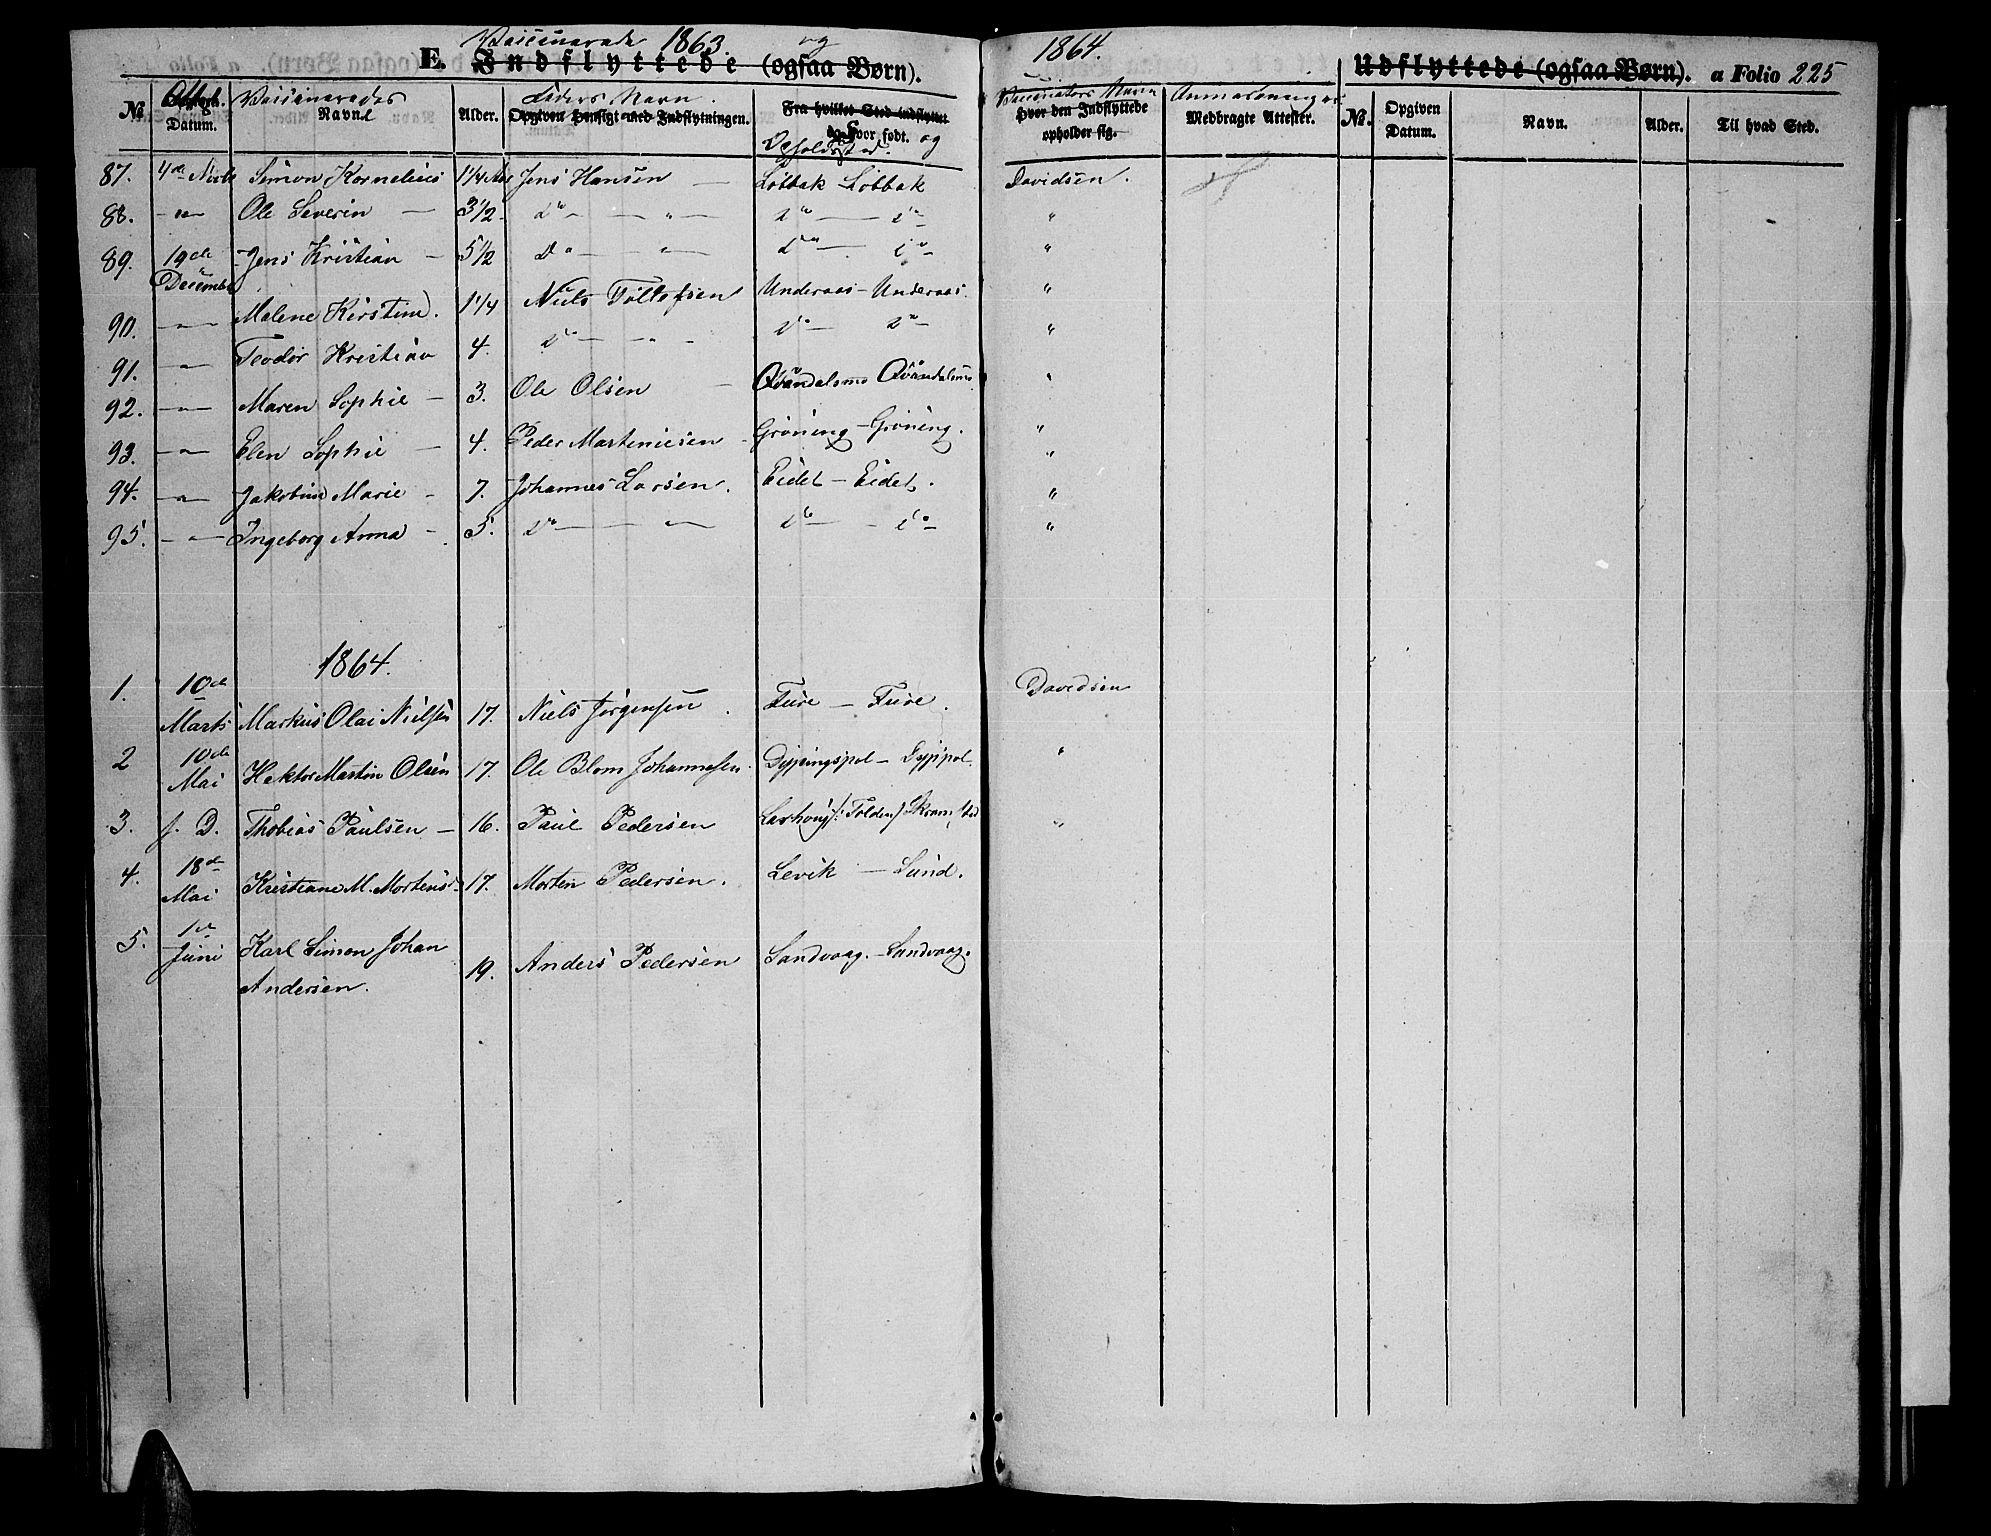 Vaccinerede 1863. og 1864.
E. Indflyttede (ogsaa Børn). Udflyttede (ogsaa Børn). a Folio 225
No. Datum. Vaccineredes Navn. Alder. Faders Navn. Opgiven Hensigt med Indflytningen. Fra hvilket Sted indflyttet og hvor født. Opholdsted og Vaccinators Navn Hvor den Indflyttede opholder sig. Anmærkninger. Medbragte Attester. No. Opgiven Datum. Navn. Alder. Til hvad Sted.
87. 4de Simon Kornelius 1 1/4 Aar Jens Hansen — Løbbak Løbbak Davidsen.
88. —"— Ole Severin — 3 1/2 Do — " — Do — do "
89. 19de December Jens Kristian — 5 1/2 Do — " — Do — do "
90. —"— Malene Kirstine. 1 1/4 Niels Tollefsen Underaas — Underaas. "
91. —"— Teodor Kristian 4. Do — " — Do — Do "
92. —"— Maren Sophie — 3. Ole Olsen — Qvandalsmo Qvandalsmo "
93. —"— Elen Sophie — 4. Peder Martiniesen — Grøning — Grøning. "
94. —"— Jakobine Marie — 7. Johannes Larsen. Eidet — Eidet. "
95. —"— Ingeborg Anna — 5. Do — " — Do — do "
1864.
1. 10de Marts Markus Olai Nielsen 17. Niels Jørgensen. Fure — Fure. Davidsen
2 10de Mai Hektor Martin Olsen 17. Ole Blom Johannesen. Dypingspol — Dypspol. "
3. s. D. Thobias Paulsen — 16. Paul Pedersen "
4. 18de Mai Kristiane M. Mortensd. 17. Morten Pedersen. Levik — Lund.
5. 1ste Juni Karl Simon Johan
Andersen. 19. Anders Pedersen Sandvaag. — Sandvaag.